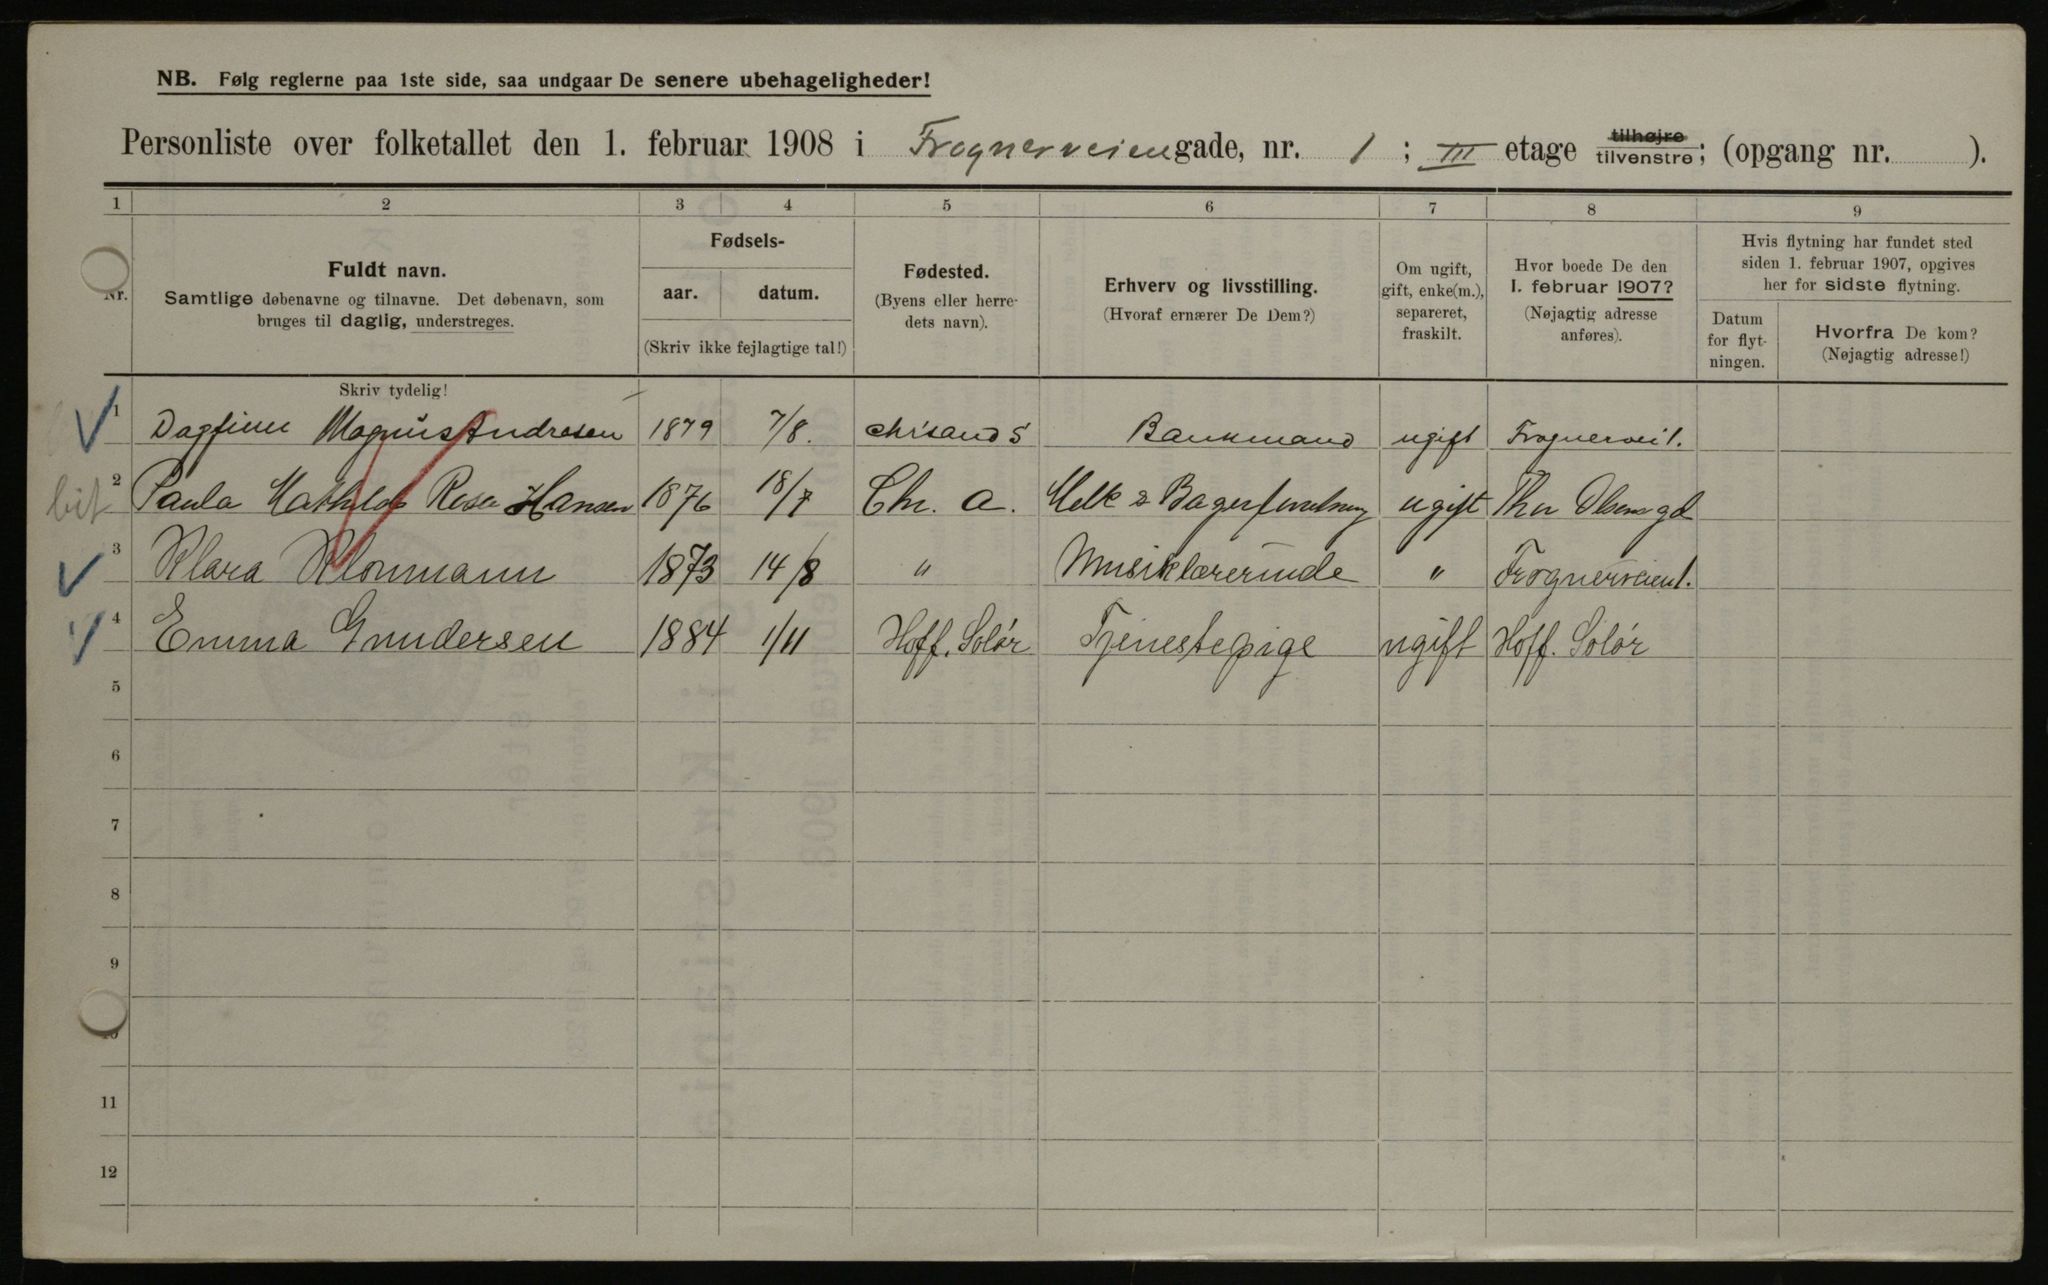 NB. Følg reglerne paa 1ste side, saa undgaar De senere ubehageligheder!
Personliste over folketallet den 1. februar 1908 i Frognerveien gade, nr. 1 ; III etage tilhøjre tilvenstre; (opgang nr. ).
1 2 3 4 5 6 7 8 9
Nr. Fuldt navn. Samtlige døbenavne og tilnavne. Det døbenavn, som bruges til daglig, understreges.
Fødsels- aar. datum. (Skriv ikke fejlagtige tal!)
Fødested. (Byens eller herredets navn).
Erhverv og livsstilling. (Hvoraf ernærer De Dem?)
Om ugift, gift, enke(m.), separeret, fraskilt.
Hvor boede De den 1. februar 1907? (Nøjagtig adresse anføres).
Hvis flytning har fundet sted siden 1. februar 1907, opgives her for sidste flytning.
Datum for flytningen. Hvorfra De kom? (Nøjagtig adresse!)
Skriv tydelig!
1 Dagfinn Magnus Andresen 1879 7/8. Chrsand S Bankmand ugift Frognervei 1.
bit 2 Paula Mathilde Rosa Hansen 1876 18/7 Chr. a. Melk & Bagerforretning ugift Thor Olsens gd
3 Klara Klonmann 1873 14/8 " Musiklærerinde " Frognerveien 1.
4 Emma Gundersen 1884 1/11 Hoff, Solør Tjenestepige ugift Hoff. Solør
5
6
7
8
9
10
11
12